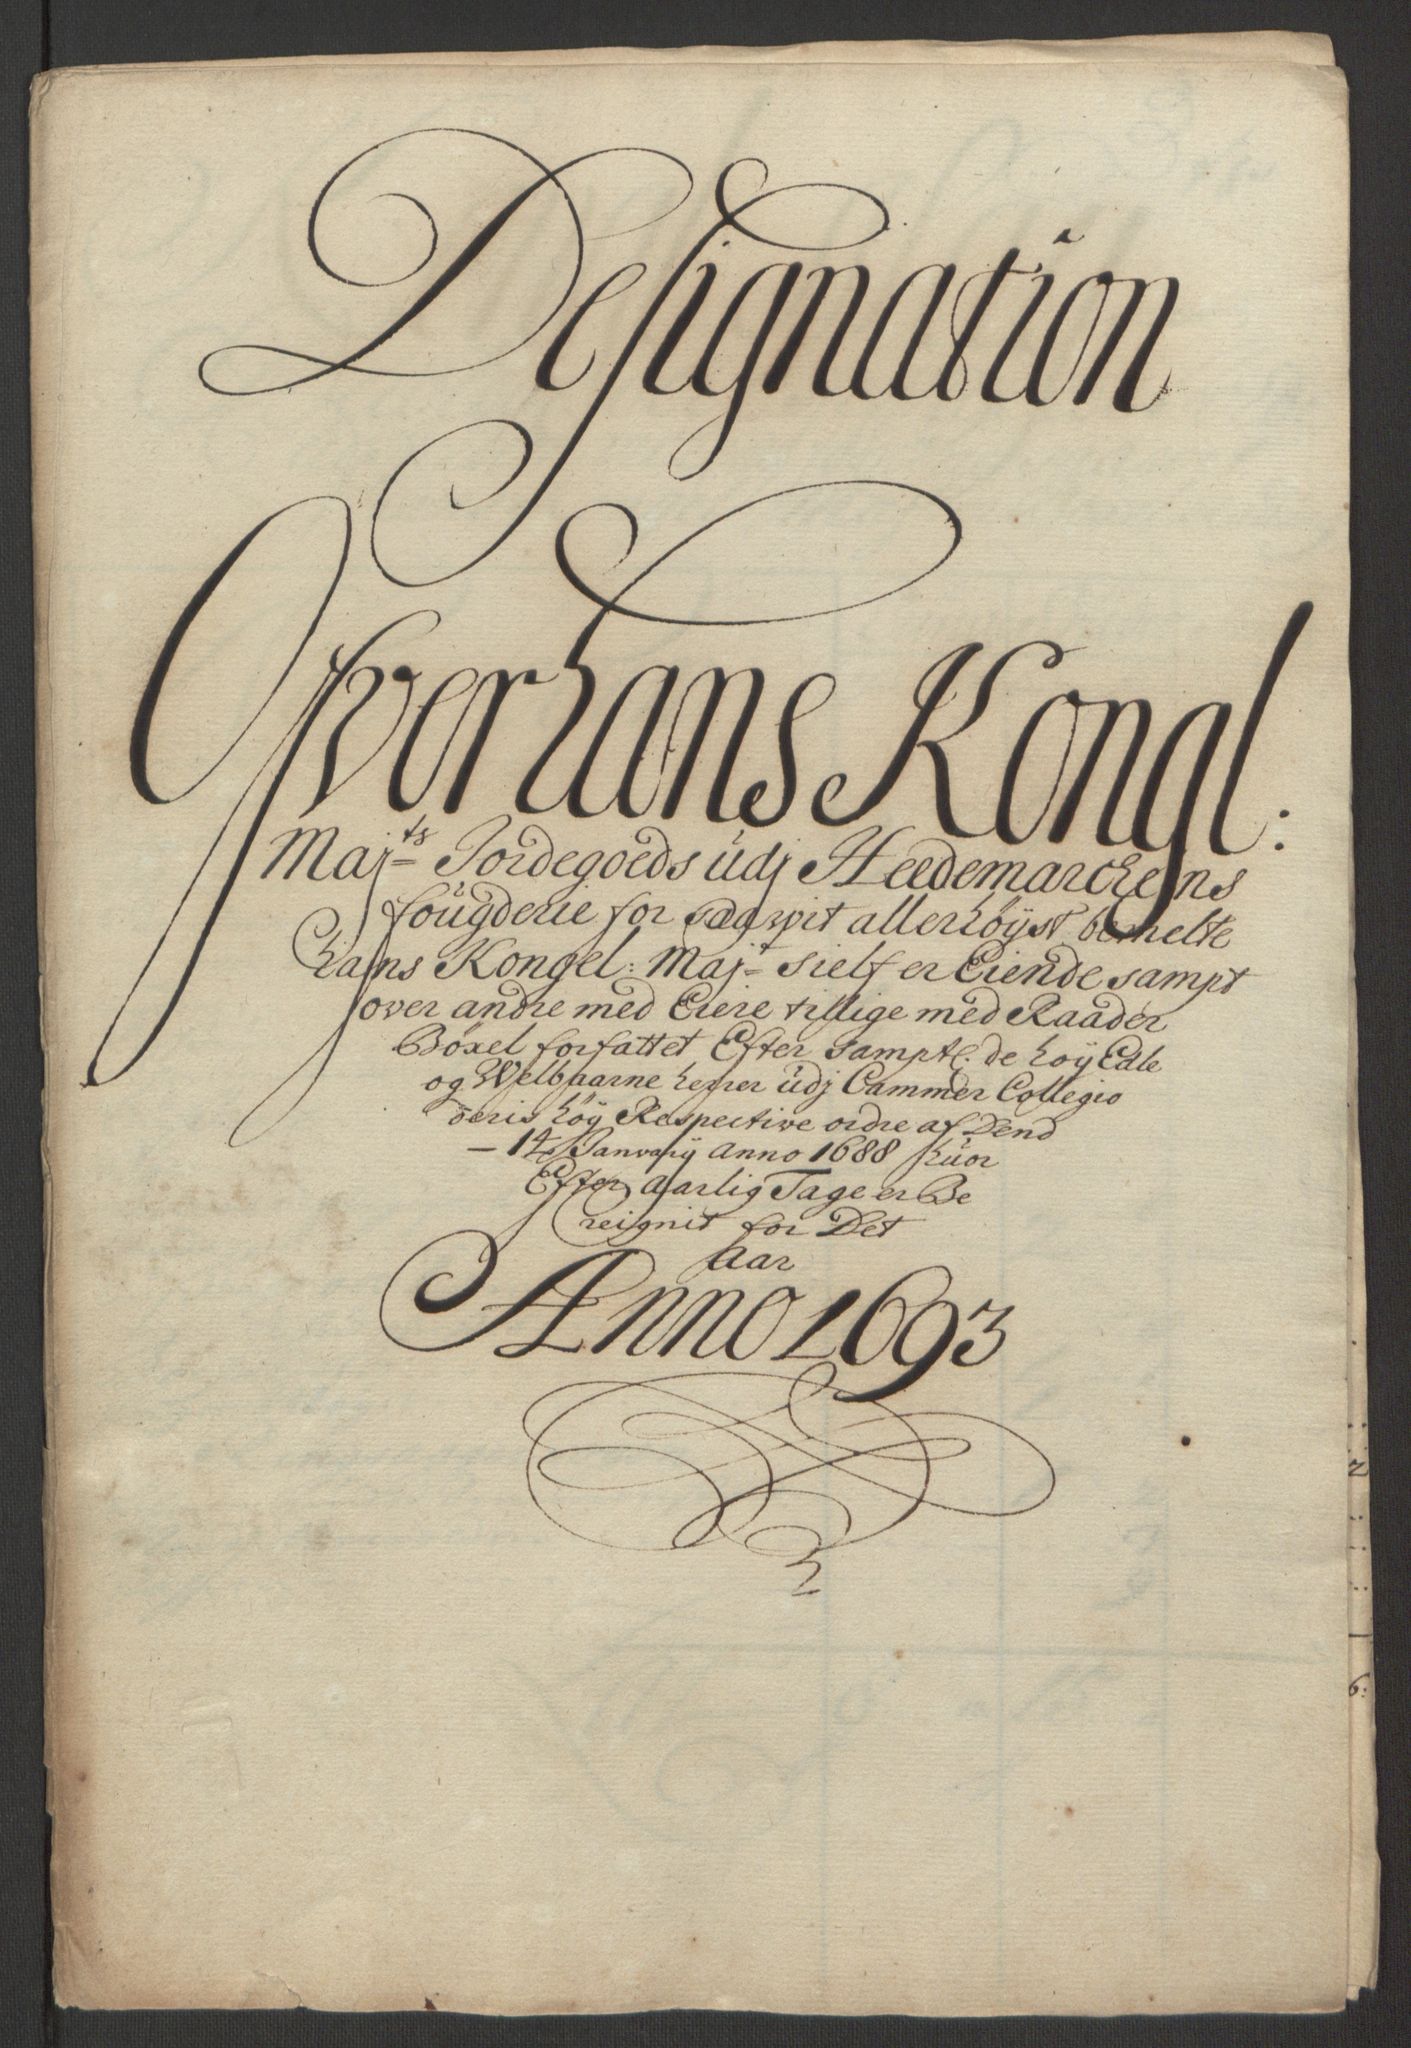 Designation
Offver hans Kongl:
Maj:ts Jordegoeds udj Heedemarchens
fougderie for saawit allerhøyst bemelte
hans Kongel: Maj:t sielf er Eiende sampt
over andre med Eiere tillige med Raader
Bøxel forfattet Efter samptl: de høy Edle
og Welbaarne herrer udj Cammer Collegio
deris høy Respective ordre af Dend
14 Janvary anno 1688 huor
Efter aarlig Tage er Be
reignit for Det
Aar
Anno 1693